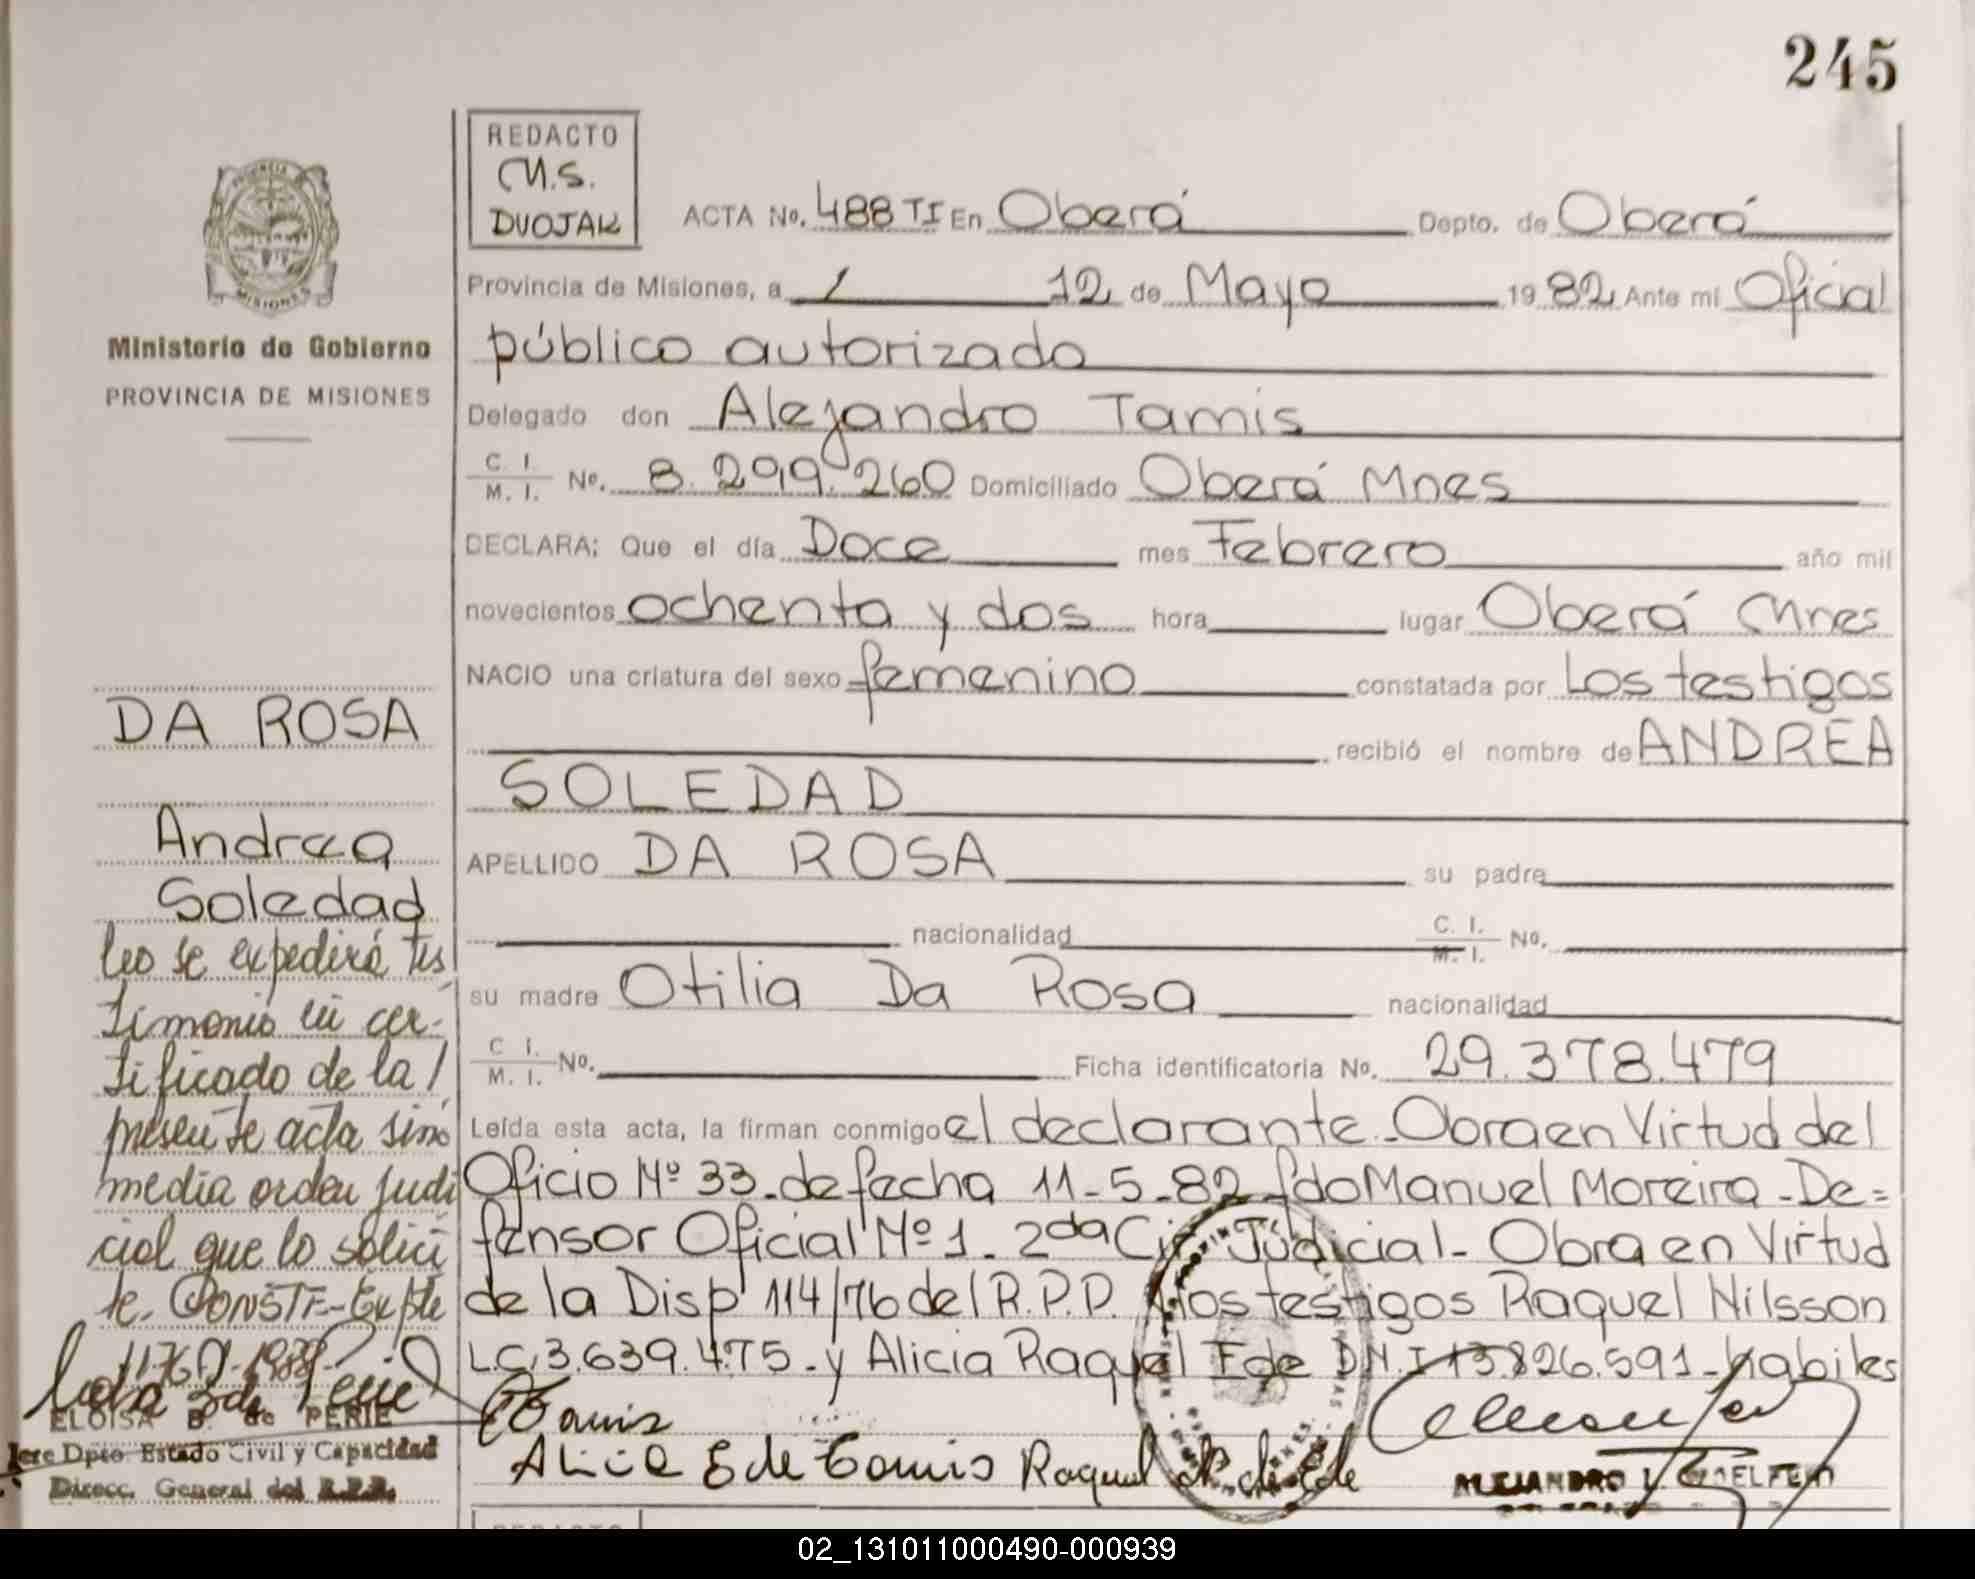 245
REDACTO
M.S.
DVOJAK
ACTA No. 488 TI En Oberá Depto. de Oberá
Provincia de Misiones, a / 12 de Mayo 1982 Ante mi Oficial
público autorizado
Delegado don Alejandro Tamis
C. I.
M. I. No. 8.299.260 Domiciliado Oberá Mnes
DECLARA: Que el día Doce mes Febrero año mil
novecientos ochenta y dos hora lugar Oberá Mnes
NACIO una criatura del sexo femenino constatada por Los testigos
recibió el nombre de ANDREA
SOLEDAD
APELLIDO DA ROSA su padre
nacionalidad C. I. M. I. No.
su madre Otilia Da Rosa nacionalidad
C. I. M. I. No. Ficha identificatoria No. 29.378.479
Leída esta acta, la firman conmigo el declarante. Obra en Virtud del
Oficio Nº 33. de fecha 11-5-82 fdo Manuel Moreira - De=
fensor Oficial Nº 1. 2da Cir Judicial - Obra en Virtud
de la Disp 114/76 del R.P.P. los testigos Raquel Nilsson
L.C. 3.639.475. y Alicia Raquel Ede D.N.I 13.826.591 - habiles
Alicia E de Tamis Raquel N. de Ede
ALEJANDRO
MISIONES
Ministerio de Gobierno
PROVINCIA DE MISIONES
DA ROSA
Andrea
Soledad
se expedirá tes
timonio ni cer-
tificado de la /
presente acta sino
media orden judi
cial que lo solici
te. CONSTE- Expte
1988
ELOISA B. de PERIE
Jere Dpto. Estado Civil y Capacidad
Direcc. General del R.P.P.
02_131011000490-000939